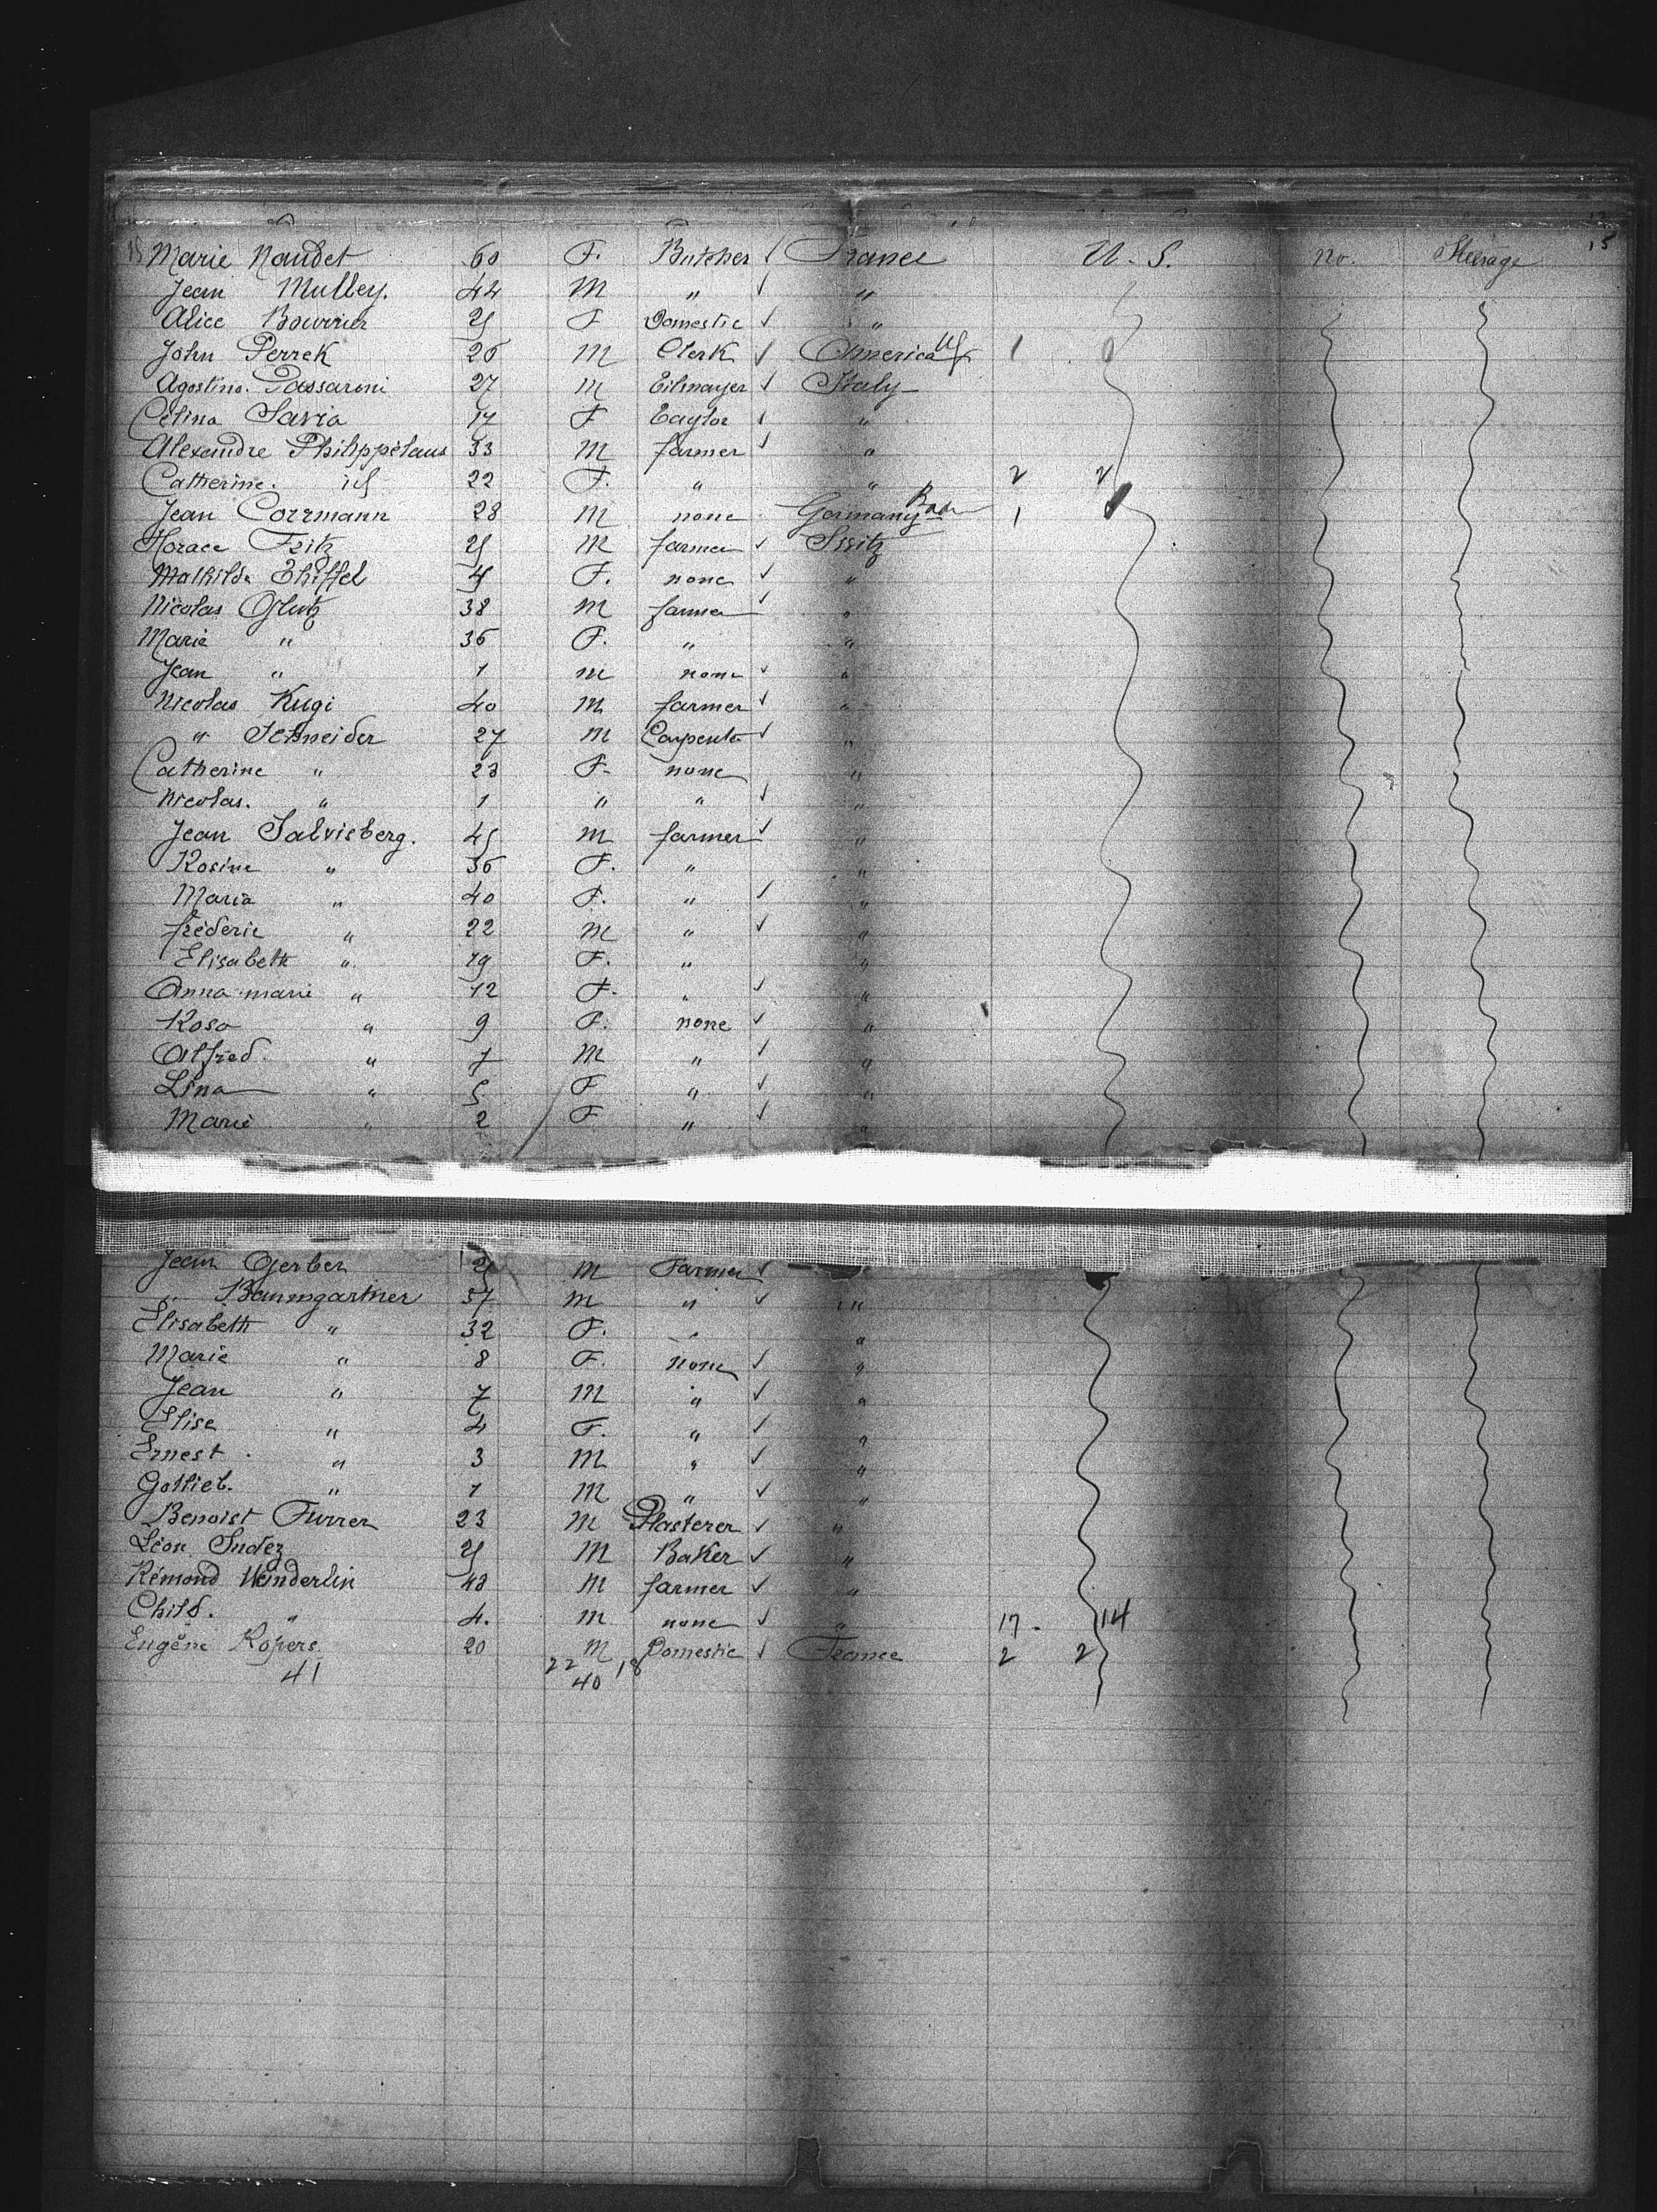 Marie Naudet 60 F. Butcher ✓ France U. S. no. Steerage 15
Jean Mulley. 44 M " ✓ "
Alice Bourrier 25 F Domestic ✓ "
John Perrek 26 M Clerk ✓ America 1
Agostino. Passaroni 27 M ✓ Italy
Celina Savia 17 F ✓ "
Alexandre 33 M farmer ✓ "
Catherine. id 22 F. " " 2 2
Jean Corrmann 28 M none Germany 1
Horace Fritz 25 M farmer ✓
Mathilde Thiffel F. none ✓ "
Nicolas 38 M farmer ✓ "
Marie " 36 F. " "
Jean " 1 M none ✓ "
Nicolas Kugi 40 M farmer ✓ "
" Schneider 27 M ✓ "
Catherine " 23 F. none "
Nicolas. " 1 " " ✓ "
Jean Salvisberg. 45 M farmer ✓ "
Rosine " 36 F. " "
Maria " 40 F. " ✓ "
fréderic " 22 M " ✓ "
Elisabeth " 19 F. " "
Anna marie " 12 F. " ✓ "
Rosa " 9 F. none ✓ "
Alfred. " 7 M " ✓ "
Lina " 5 F " ✓ "
Marie " 2 F " ✓ "
Jean Gerber M Farmer ✓
" Baumgartner 37 M " ✓ "
Elisabeth " 32 F. " "
Marie " 8 F. none ✓ "
Jean " 7 M " ✓ "
Elise " 4 F. " ✓ "
Ernest " 3 M " ✓ "
Gottieb. " 1 M " ✓ "
Benoist Furrer 23 M Plasterer ✓ "
Léon 25 M Baker ✓ "
Rémond Wunderlin 43 M farmer ✓ "
Child. " 4. M none ✓ " 17 - 14
Eugène Ropers 20 M Domestic ✓ France 2 2
41 22 18
40